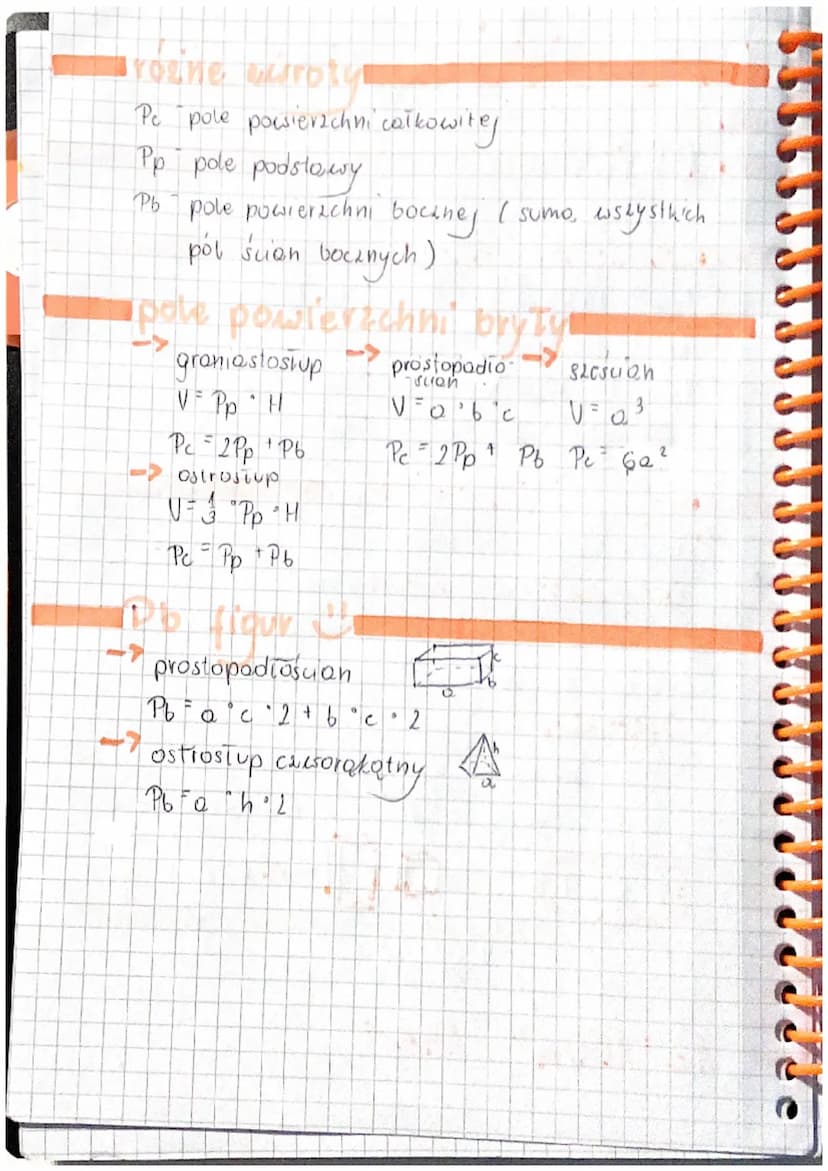 różne wzroty
Pc - pole powierzchni całkowitej
Pp - pole podstawy
Pb - pole powierzchni bocznej (suma wszystkich
pól ścian bocznych)
pole powierzchni bryły
→ graniastosłup
V = Pp · H
Pc = 2Pp + Pb
→ ostrosłup
V = 1/3 · Pp · H
Pc = Pp + Pb
→ prostopadło-
-ścian
V = a · b · c
Pc = 2Pp + Pb
→ sześcian
V = a³
Pc = 6a²
Pb figur
→ prostopadłościan
a b c
Pb = a · c · 2 + b · c · 2
→ ostrosłup czworąkątny
h
a
Pb = a · h · 2